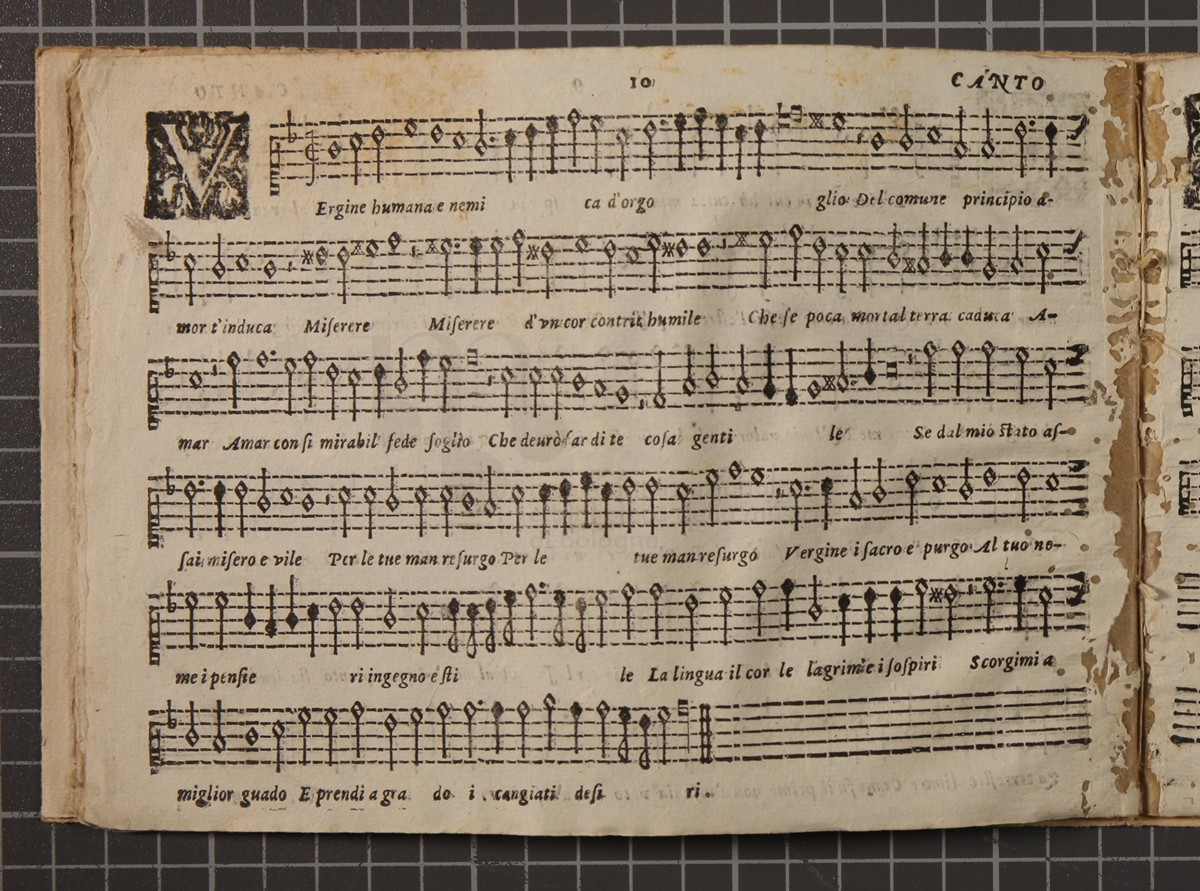 10 CANTO
VErgine humana e nemi ca d'orgo glio Del comune principio a-
mor t'induca Miserere Miserere d'vn cor contrit humile Che se poca mortal terra caduca A-
mar Amar con si mirabil fede soglio Che deurò far di te cosa genti le Se dal mio stato as-
sai misero e vile Per le tue man resurgo Per le tue man resurgo Vergine i sacro e purgo Al tuo no-
me i pensie ri ingegno e sti le La lingua il cor le lagrime i sospiri Scorgimi a
miglior guado E prendi a gra do i cangiati desi ri.